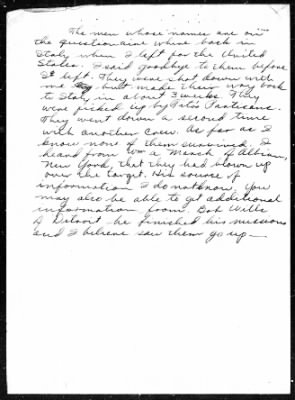 The men whose names are on
the questionaire where back in
Italy when I left for the United
States. I said goodbye to them before
I left. They were shot down with
me but made their way back
to Italy in about 3 weeks. They
were picked up by Titos Partisans.
They went down a second time
with another crew. As far as I
know none of them survived. I
heard from Wm a Mench of Albany,
New York, that they had blown up
over the target. His source of
information I do not know. You
may also be able to get additional
information from Bob Wills
of Detroit he finished his missions
and I believe saw them go up.